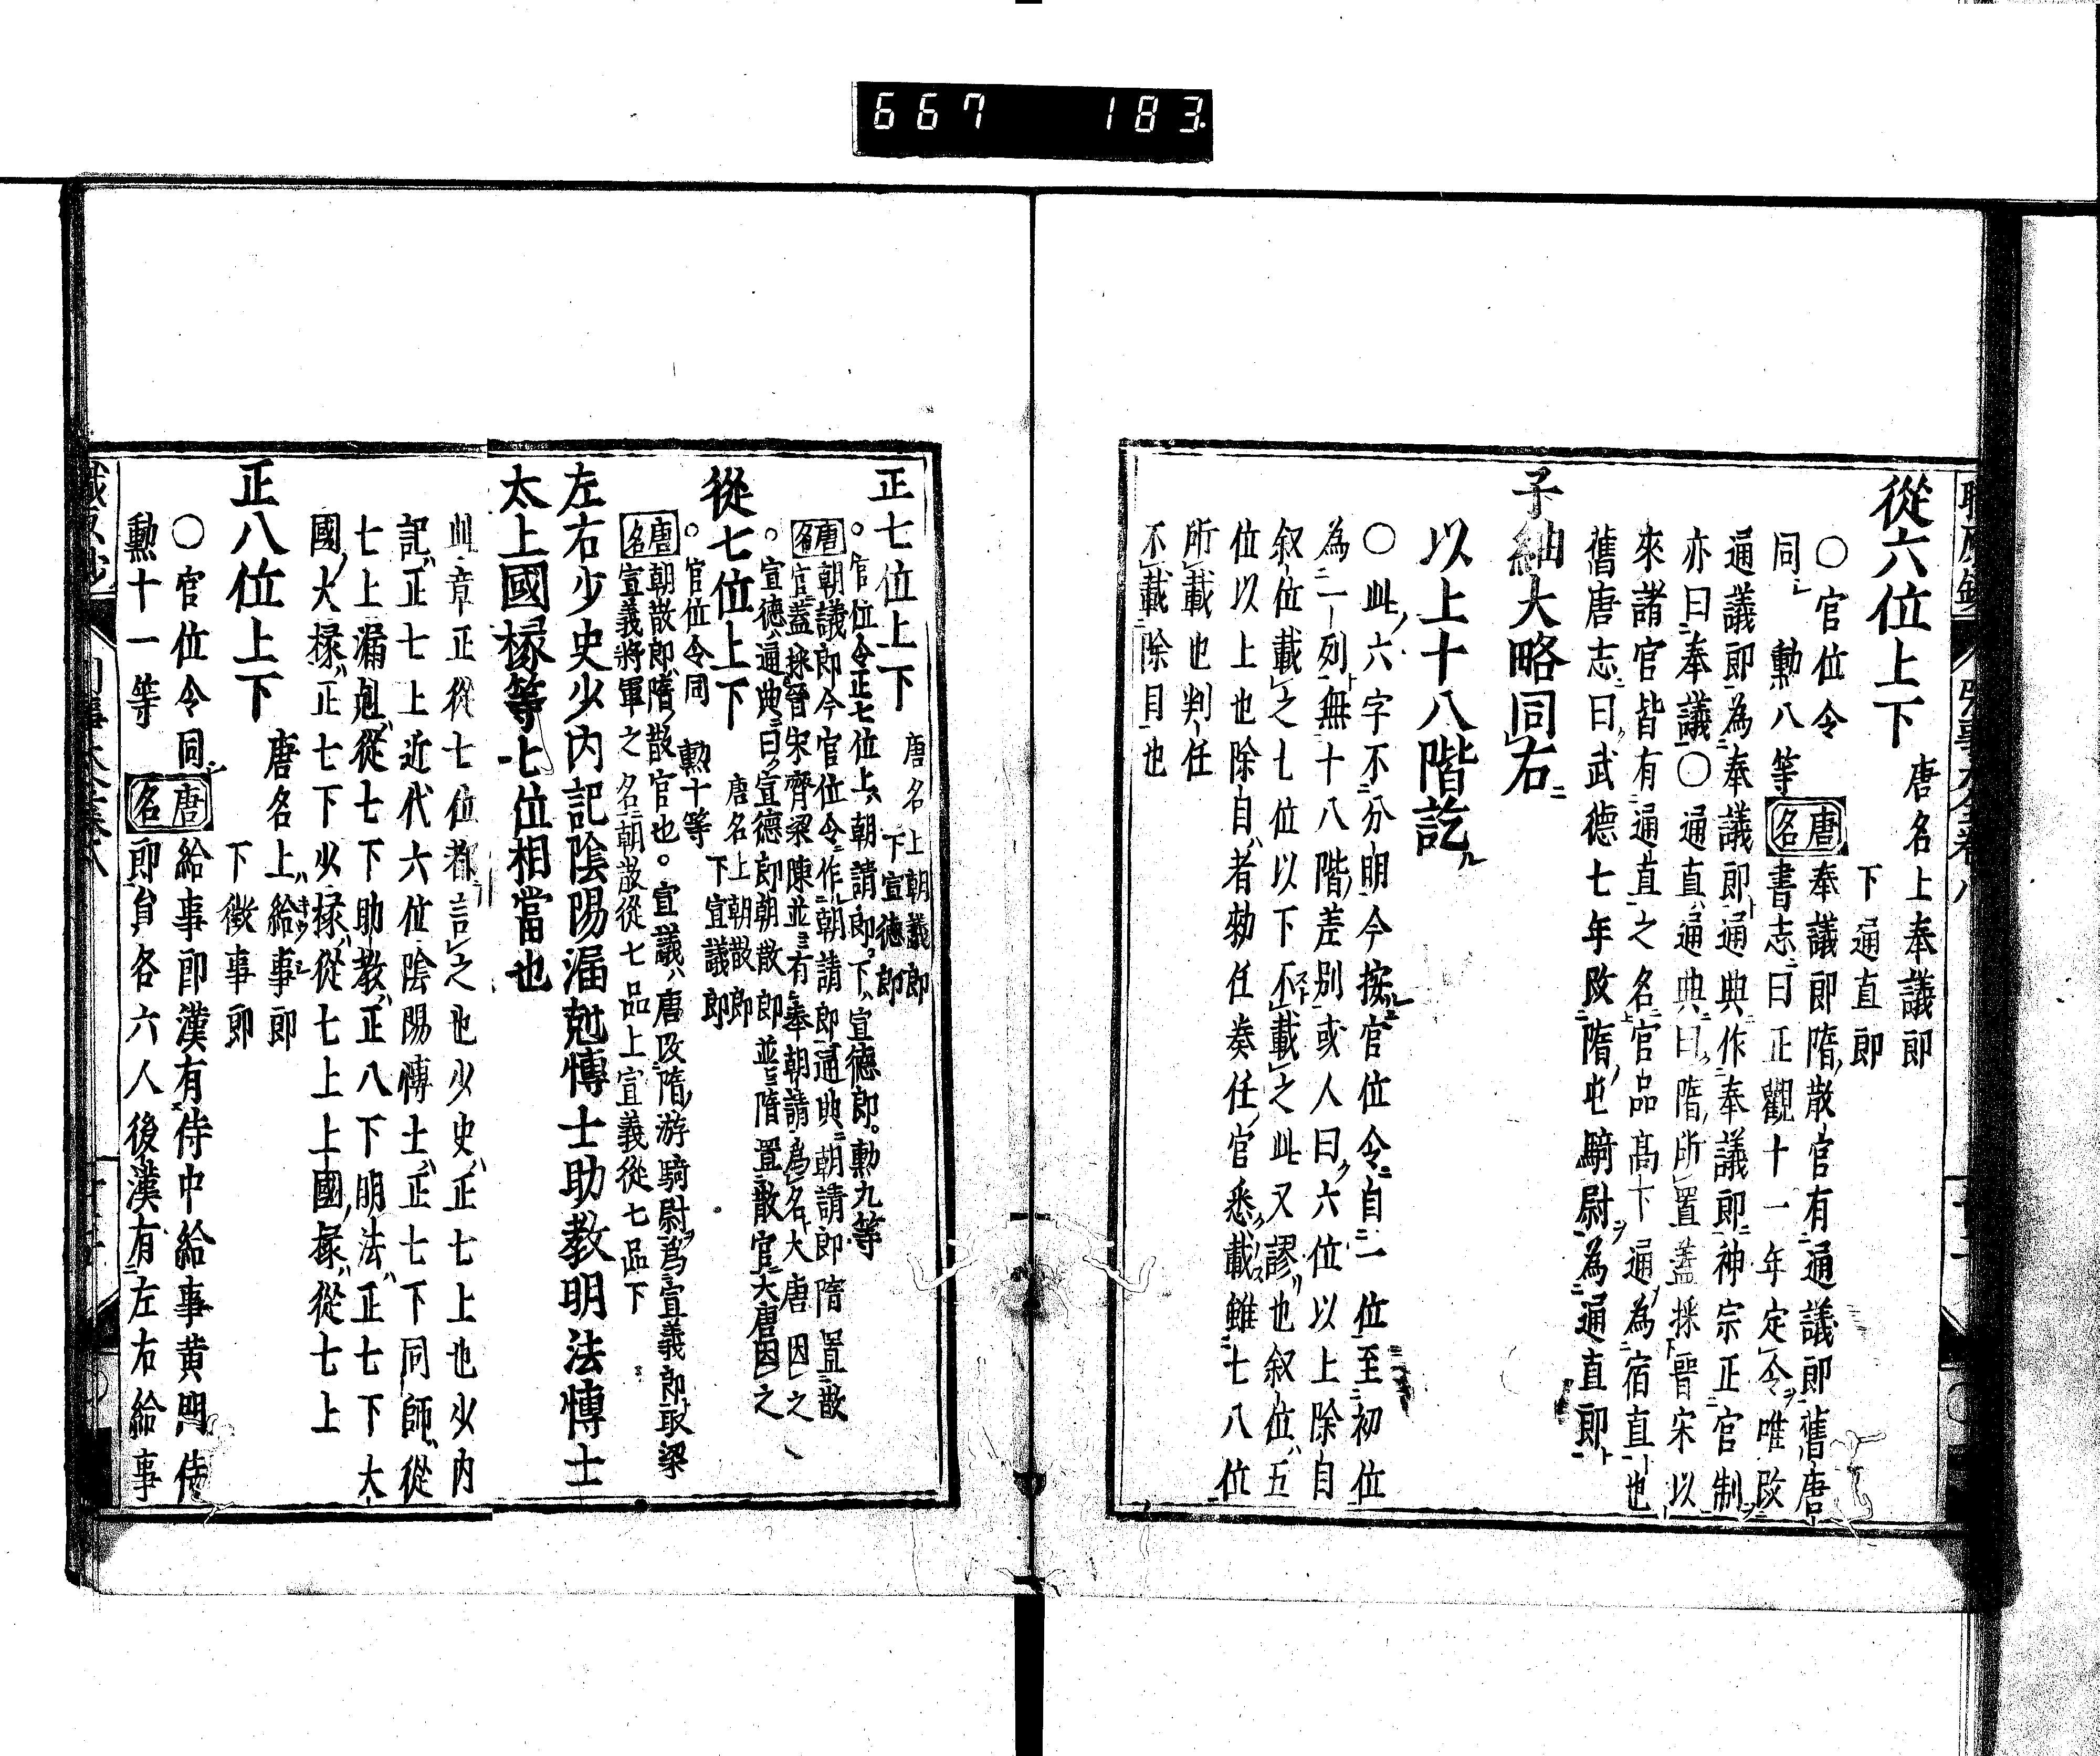 667 183
從六位上下
唐名上奉議郎
下通直郎
〇官位令
同 勲八等
唐名
奉議郎隋散官有通議郎舊唐
書志曰正觀十一年定令唯改
通議郎為奉議郎通典作奉議郎神宗正官制
亦曰奉議〇通直通典曰隋所置蓋採晉宋以
來諸官皆有通直之名官品髙下通為宿直也
舊唐志曰武德七年改隋屯騎尉為通直郎
子細大略同右
以上十八階訖
〇此六字不分明今按官位令自一位至初位
為一列無十八階差别或人曰六位以上除自
叙位載之七位以下不載之此又謬也叙位五
位以上也除自者勅任奏任官悉載雖七八位
所載也判任
不載除目也
正七位上下
唐名上朝議郎
下宣德郎
。官位令正七位上朝請郎。下宣德郎。勲九等
唐名
朝議郎今官位令作朝請郎通典朝請郎隋置散
官蓋採晉宋齊梁陳並有奉朝請為名大唐因之
。宣德通典曰宣德郎朝散郎並隋置散官大唐因之
從七位上下
唐名上朝散郎
下宣議郎
。官位令同 勲十等
唐名
朝散郎隋散官也。宣議唐改隋游騎尉為宣義郎取梁
宣義將軍之名朝散從七品上宣義從七品下
左右少史少内記陰陽漏尅博士助教明法博士
太上國掾等七位相當也
此章正從七位都言之也少史正七上也少内
記正七上近代六位陰陽博士正七下同師從
七上漏尅從七下助教正八下明法正七下大
國大掾正七下少掾從七上上國掾從七上
正八位上下
唐名上給事郎
下徵事郎
〇官位令同
勲十一等
唐名
給事郎漢有侍中給事黄門侍
郎員各六人後漢有左右給事